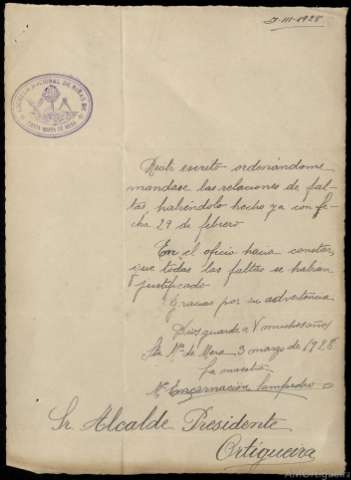 7-III-1928
ESCUELA NACIONAL DE NIÑAS DE
SANTA MARIA DE MERA
Recibí escrito ordenándome
mandase las relaciones de fal-
tas habiéndolo hecho ya con fe-
cha 29 de febrero
En el oficio hacia constar
que todas las faltas se habian
justificado
Gracias por su advertencia
Dios guarde a V muchos años
Sta Mª de Mera 3 marzo de 1928
La maestra
Encarnación
Sr. Alcalde Presidente
Ortigueira